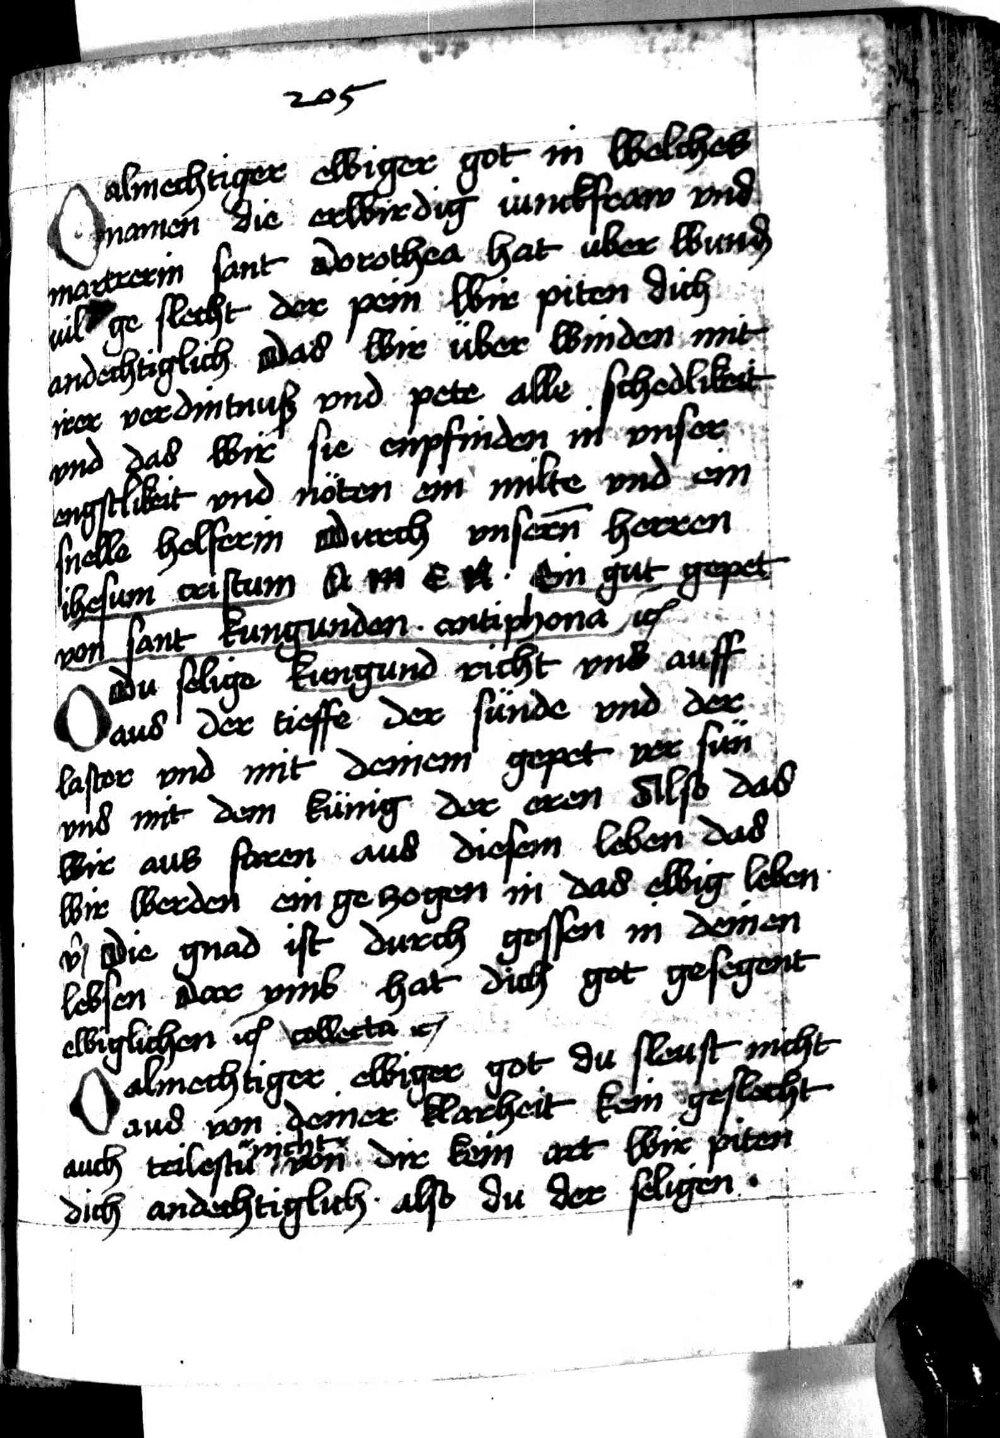 205
O almechtiger ewiger got in welches
namen die erwirdig iunckfraw vnd
martrerin sant dorothea hat uber wundn
uil ge slecht der pein Wir piten dich
andechtiglich Das wir über winden mit
irer verdintnuß vnd pete alle schedlikeit
vnd das wir sie enpfinden in vnser
engstlikeit vnd nöten ein milte vnd ein
snelle helferin Durch vnsern̄ herren
ihesum cristum A M E N · Ein gut gepet
von sant kungunden · antiphona
O Du selige kungund richt vns auff
aus der tieffe der sünde vnd der
laster vnd mit deinem gepet ver sün
vns mit dem künig der eren Also das
wir aus faren aus diesem leben das
wir werden ein gezogen in das ewig leben
Die gnad ist durch gossen in deinen
lebsen Dar vmb hat dich got gesegent
ewiglichen collecta
O almechtiger ewiger got du sleust nicht
aus von deiner klarheit kein geslecht
auch teilestu nicht von dir kein art wir piten
dich andechtiglich · also du der seligen ·